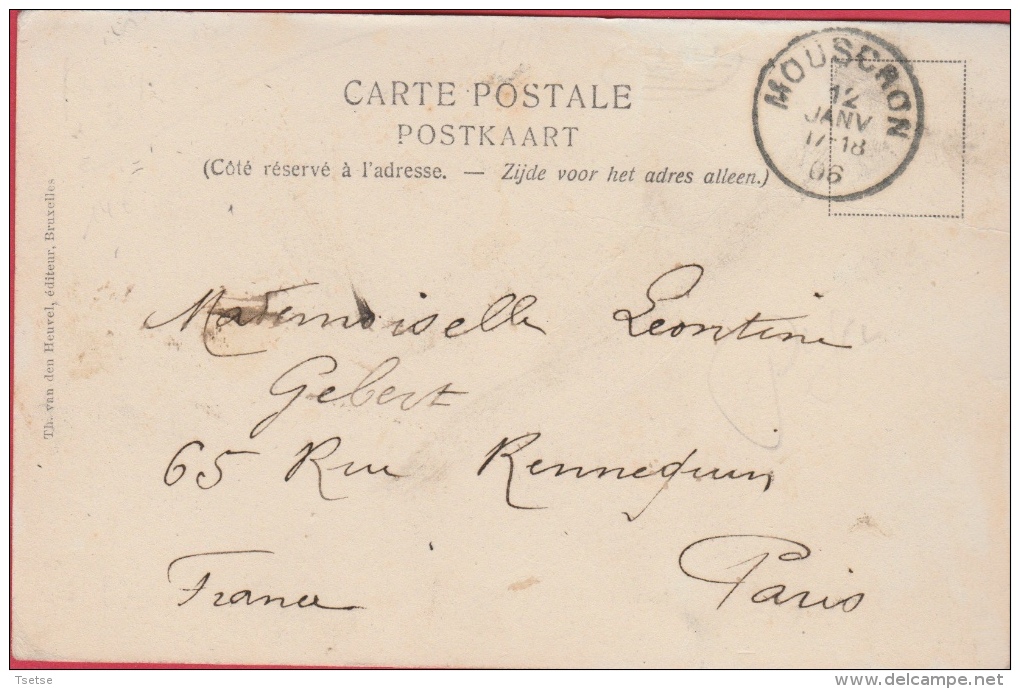 CARTE POSTALE
POSTKAART
(Côté réservé à l'adresse. — Zijde voor het adres alleen.)
MOUSCRON
12
JANV
17-18
06
Th. van den Heuvel, éditeur, Bruxelles
Mademoiselle Leontine
Gebert
65 Rue Rennequin
France Paris
Tsetse delcampe.net